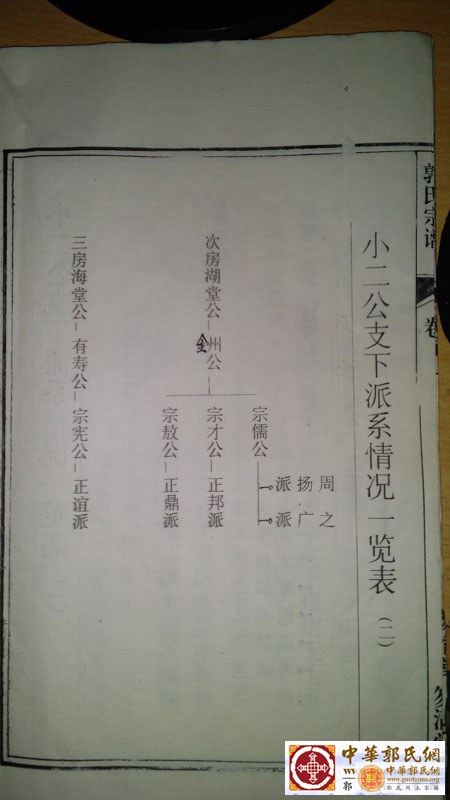 郭氏宗谱
小二公支下派系情况一览表(二)
次房湖堂公—金州公
宗儒公
周扬派
之广派
宗才公—正邦派
宗敖公—正鼎派
三房海堂公—有寿公—宗宪公—正谊派
中華郭氏網
www.guohome.org